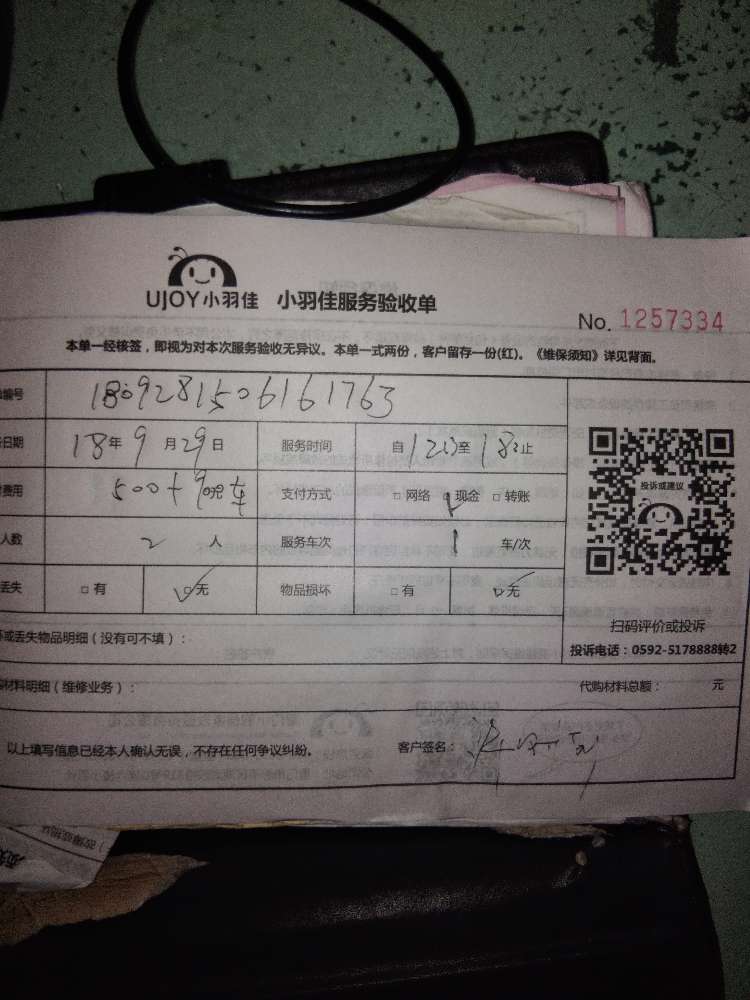 UJOY小羽佳 小羽佳服务验收单
No. 1257334
本单一经核签，即视为对本次服务验收无异议。本单一式两份，客户留存一份(红)。《维保须知》详见背面。
编号 1809281506161763
日期 18年9月29日 服务时间 自 至 止
费用 500+ 支付方式 □网络 □现金 □转账
人数 2人 服务车次 1 车/次
丢失 □有 □无 物品损坏 □有 □无
投诉或建议
扫码评价或投诉
投诉电话：0592-5178888转2
或丢失物品明细（没有可不填）：
材料明细（维修业务）： 代购材料总额： 元
以上填写信息已经本人确认无误，不存在任何争议纠纷。 客户签名：